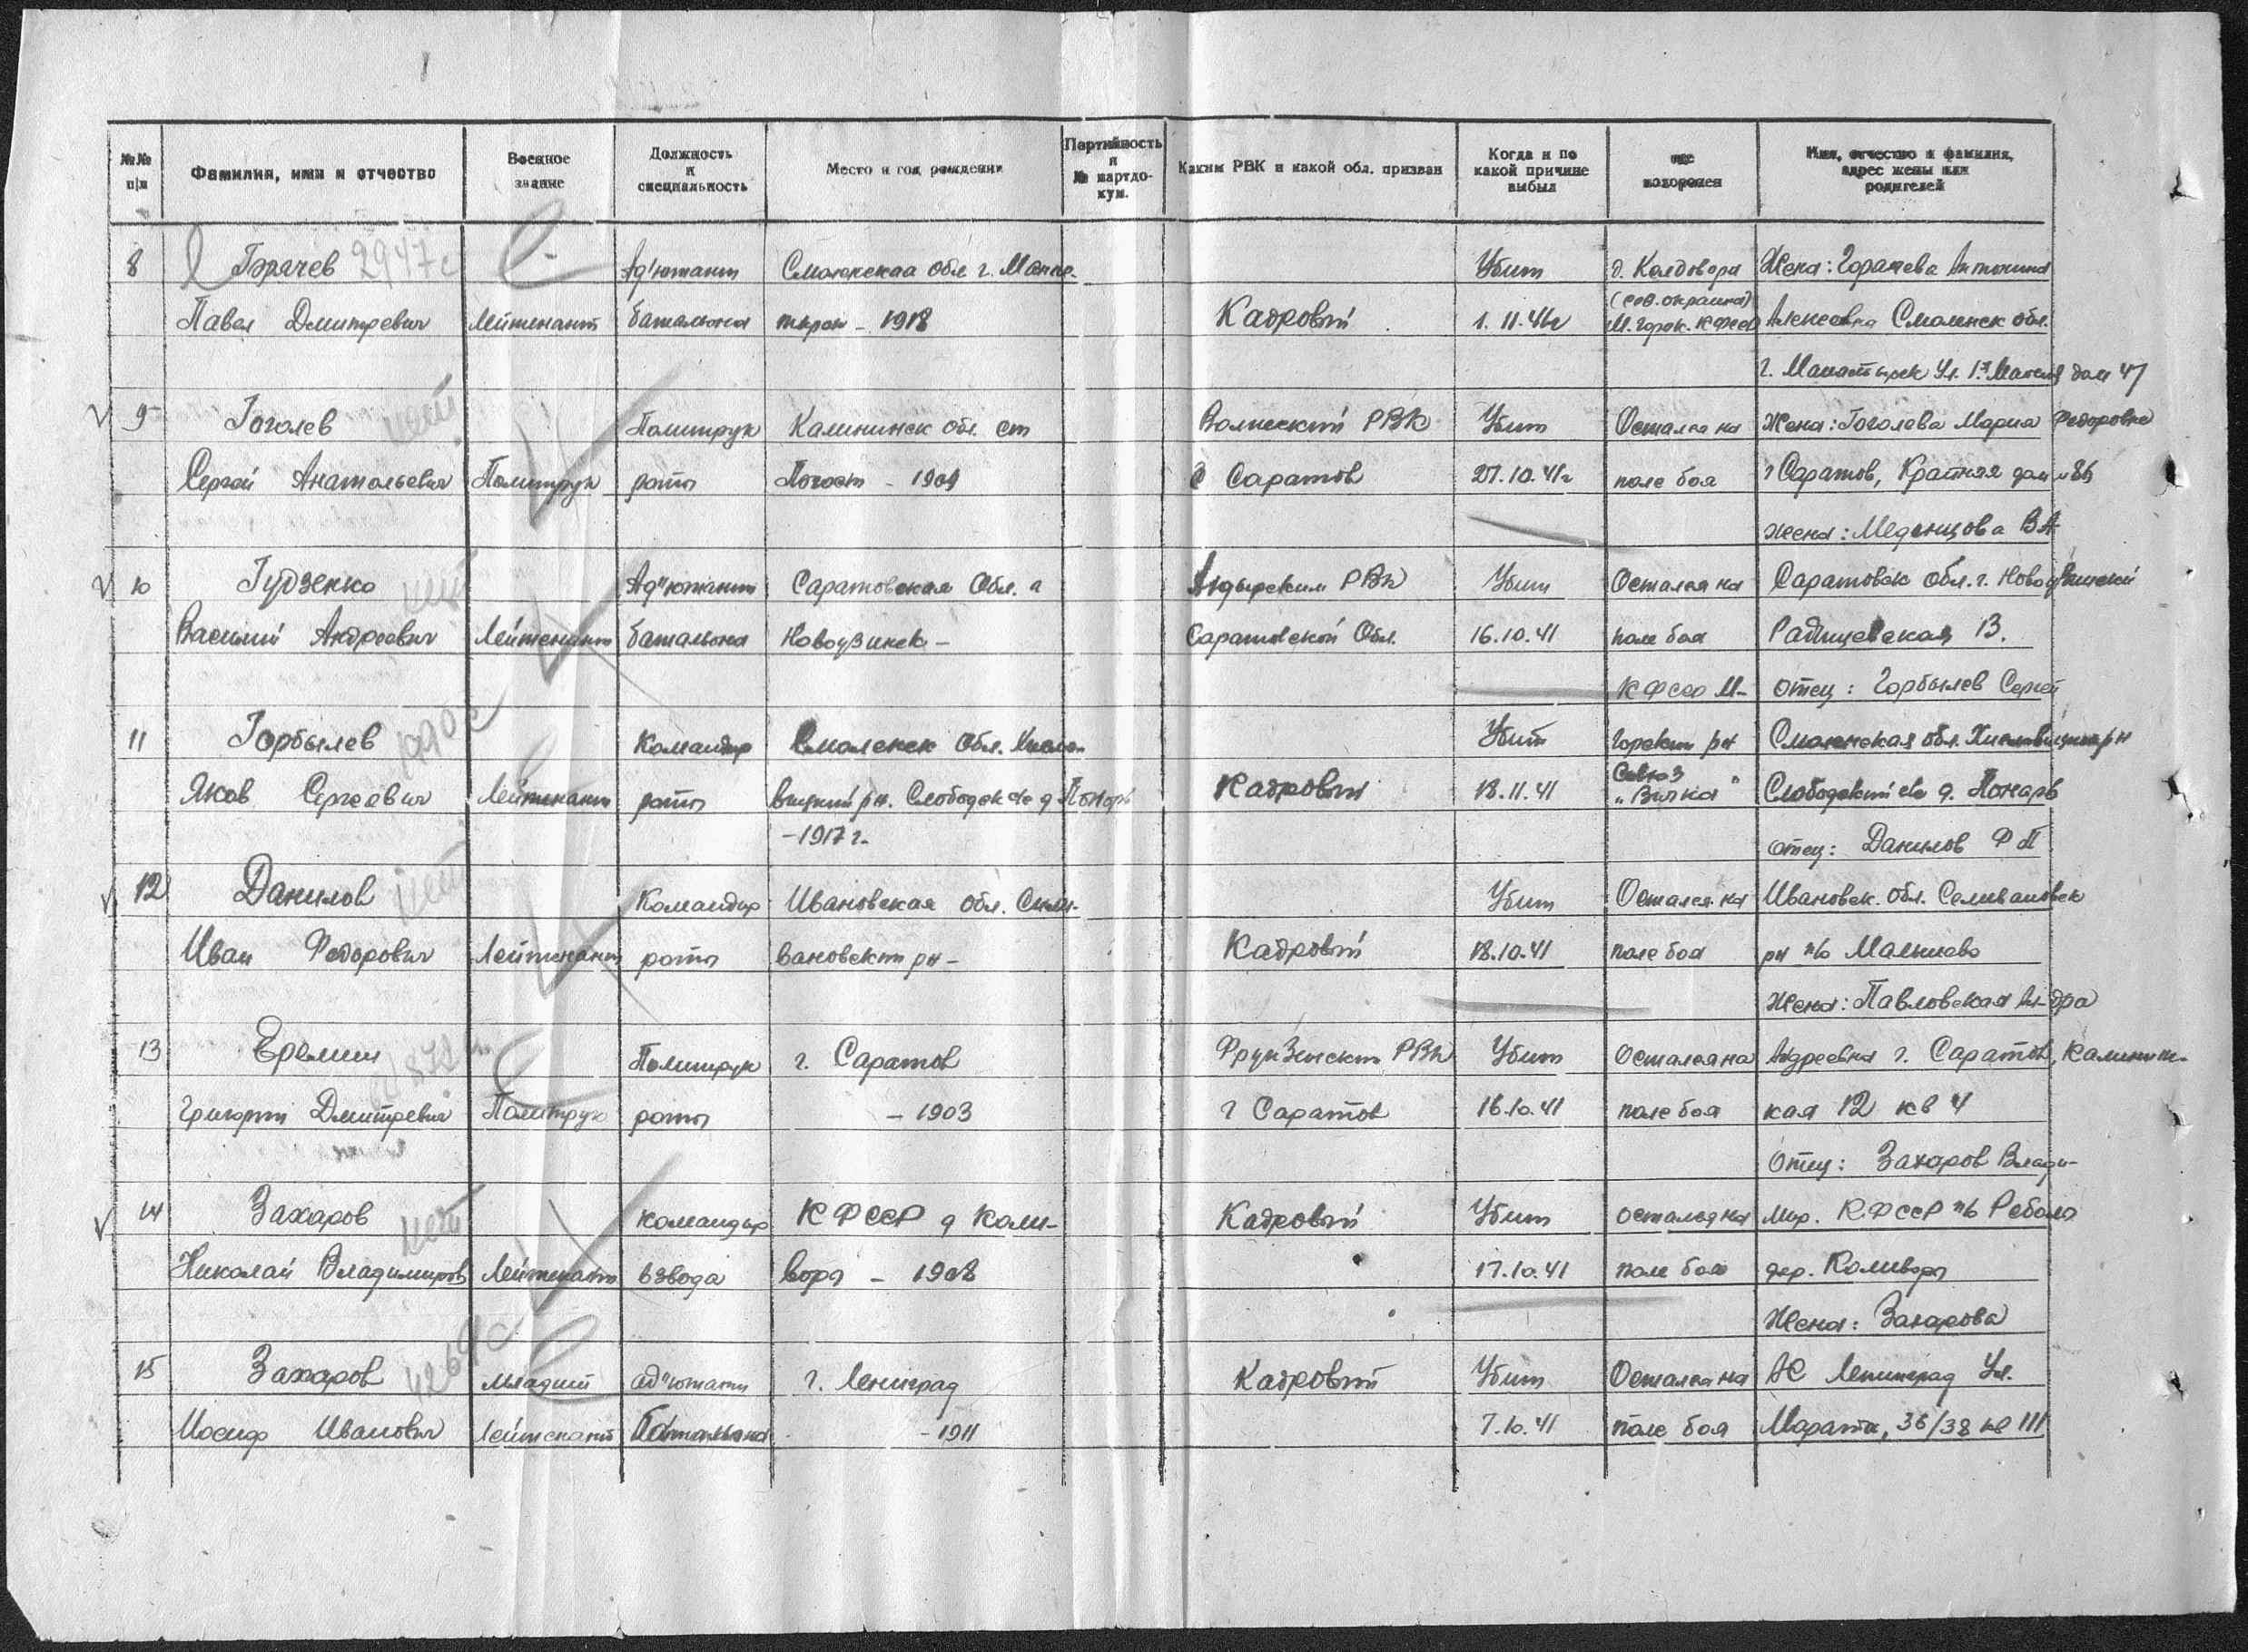 №№ п/п
Фамилия, имя и отчество
Военное звание
Должность и специальность
Место и год рождения
Партийность и № партдокум.
Каким РВК и какой обл. призван
Когда и по какой причине выбыл
где похоронен
Имя, отчество и фамилия, адрес жены или родителей
8 Горячев 2947с Ад'ютант Смоленская обл г. Убит Жена: Горячева Антонина
(сев. окраина)
Павел Дмитревич Лейтенант батальона 1918 Кадровый 1.11.41г Алексеевна Смоленск обл.
дом 47
9 Гоголев нет Политрук Калининск обл. ст Вольский РВК Убит Остался на Жена: Гоголева Мария Федоровна
Сергей Анатольевич Политрук роты Погост - 1909 г Саратов 27.10.41г поле боя г Саратов, дом
Жена: ВА
10 Гудзенко нет Ад"ютант Саратовская обл. г РВК Убит Остался на Саратовск обл. г.
Василий Андреевич Лейтенант батальона Новоузинск - Саратовской Обл. 16.10.41 поле боя Радищевская 13.
КФССР М- отец: Горбылев Сергей
11 Горбылев Командир Смоленск обл. Убит горский рн Смоленская обл.
Яков Сергеевич Лейтенант роты рн. Кадровый 18.11.41 Слободский с/с д.
- 1917 г.
отец: Данилов Ф П
12 Данилов нет Командир Ивановская обл. Сели- Убит Остался на Ивановск. обл. Селивановск
Иван Федорович Лейтенант роты вановский рн - Кадровый 18.10.41 поле боя рн п/о Малышево
Жена: Павловская Ал-дра
13 Еремин Политрук г. Саратов Фрунзенский РВК Убит Остался на Андреевна г. Саратов, Калининс-
Григорий Дмитревич Политрук роты - 1903 г Саратов 16.10.41 поле боя кая 12 кв 4
Отец: Захаров Влади-
14 Захаров нет командир КФССР д Коли- Кадровый Убит остался на мир. КФССР п/о Реболы
Николай Владимиров Лейтенант взвода воры - 1908 17.10.41 поле боя дер. Коливоры
Жена: Захарова
15 Захаров Младший ад"ютант г. Ленинград Кадровый Убит Остался на АС Ленинград Ул.
Иосиф Иванович Лейтенант батальона - 1911 7.10.41 поле боя Марата, 36/38 кв 111